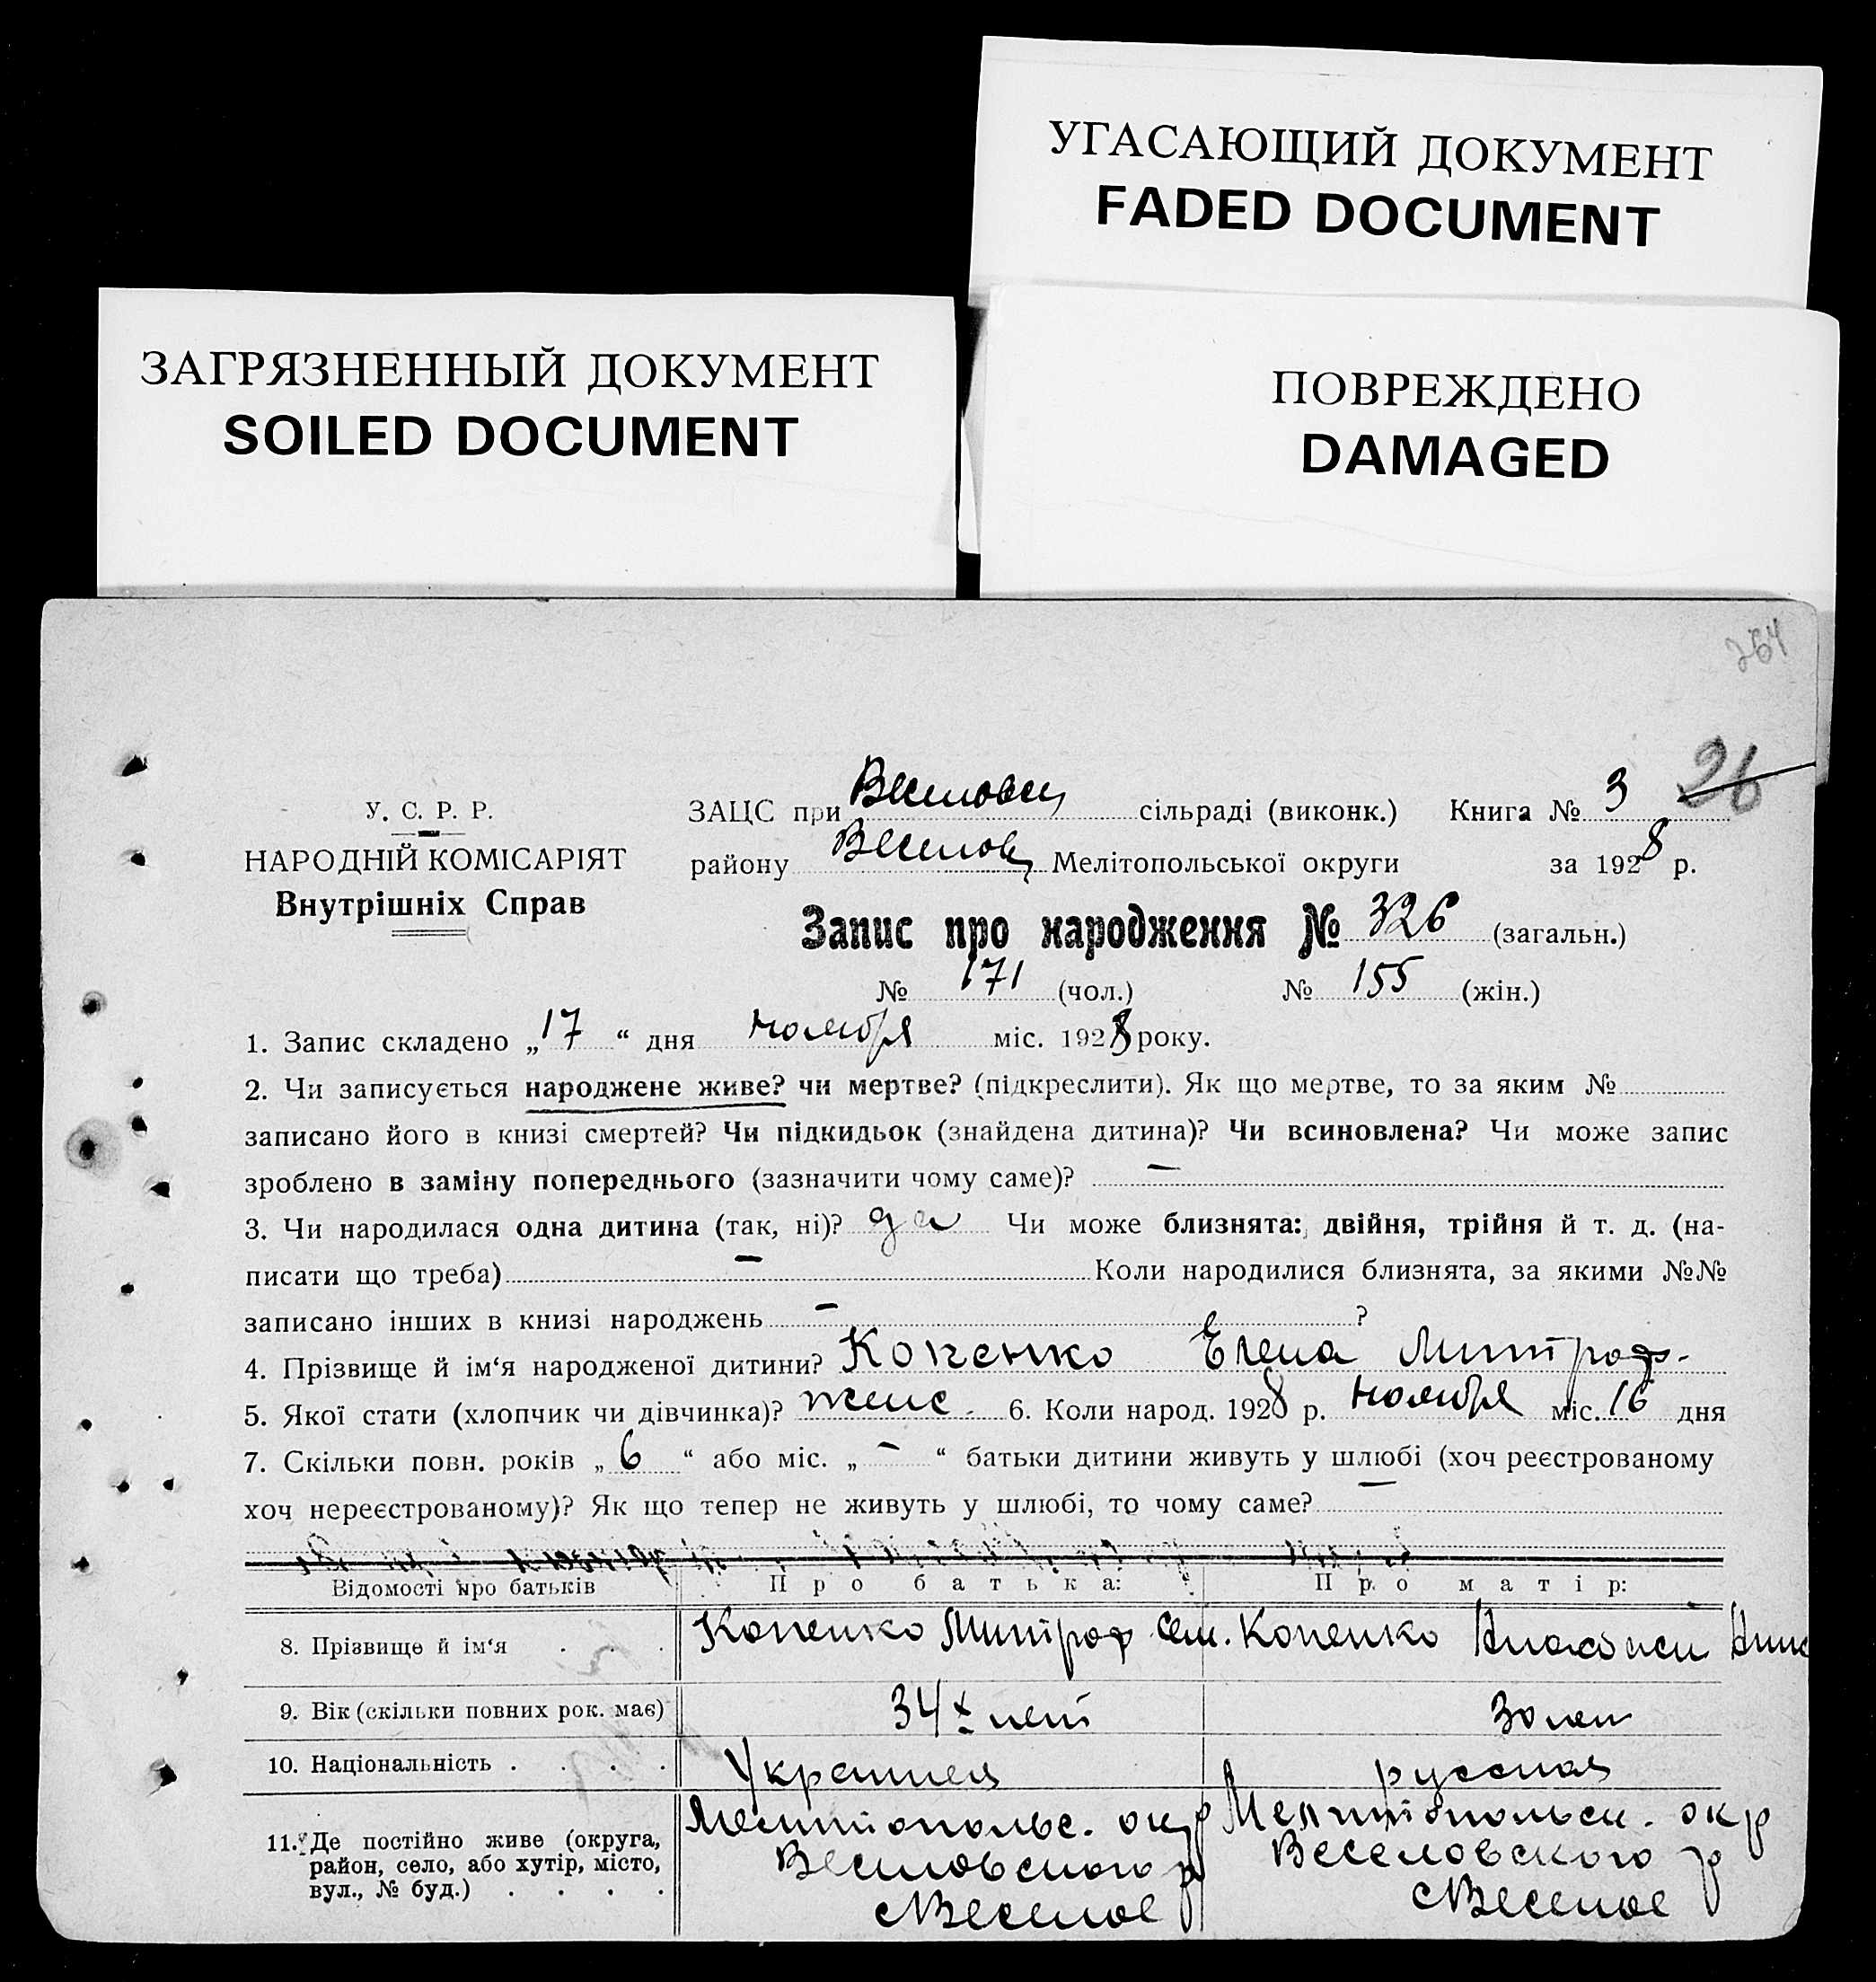 УГАСАЮЩИЙ ДОКУМЕНТ
FADED DOCUMENT
ЗАГРЯЗНЕННЫЙ ДОКУМЕНТ
SOILED DOCUMENT
ПОВРЕЖДЕНО
DAMAGED
264
26
У. С. Р. Р.
НАРОДНІЙ КОМІСАРІЯТ
Внутрішніх Справ
ЗАЦС при сільраді (виконк.) Книга № 3
району Мелітопольської округи за 1928 р.
Запис про народження № 326 (загальн.)
№ 171 (чол.) № 155 (жін.)
1. Запис складено „17“ дня ноября міс. 1928 року.
2. Чи записується народжене живе? чи мертве? (підкреслити). Як що мертве, то за яким №
записано його в книзі смертей? Чи підкидьок (знайдена дитина)? Чи всиновлена? Чи може запис
зроблено в заміну попереднього (зазначити чому саме)? —
3. Чи народилася одна дитина (так, ні)? да Чи може близнята: двійня, трійня й т. д. (на-
писати що треба) — Коли народилися близнята, за якими №№
записано інших в книзі народжень — ?
4. Прізвище й ім‘я народженої дитини? Копенко Елена Митроф.
5. Якої стати (хлопчик чи дівчинка)? женс. 6. Коли народ. 1928 р. ноября міс. 16 дня
7. Скільки повн. років „6“ або міс. „—“ батьки дитини живуть у шлюбі (хоч реєстрованому
хоч нереєстрованому)? Як що тепер не живуть у шлюбі, то чому саме? —
Відомості про батьків Про батька: Про матір:
8. Прізвище й ім‘я . . . Копенко Митроф Сем. Копенко
9. Вік (скільки повних рок. має) 34х лет 30 лет
10. Національність . . . . Украинец русская
11. Де постійно живе (округа, район, село, або хутір, місто, вул., № буд.) . . . .
Мелитопольс. окр
Веселовского р
с Веселое
Мелитопольск. окр
Веселовского р
с Веселое